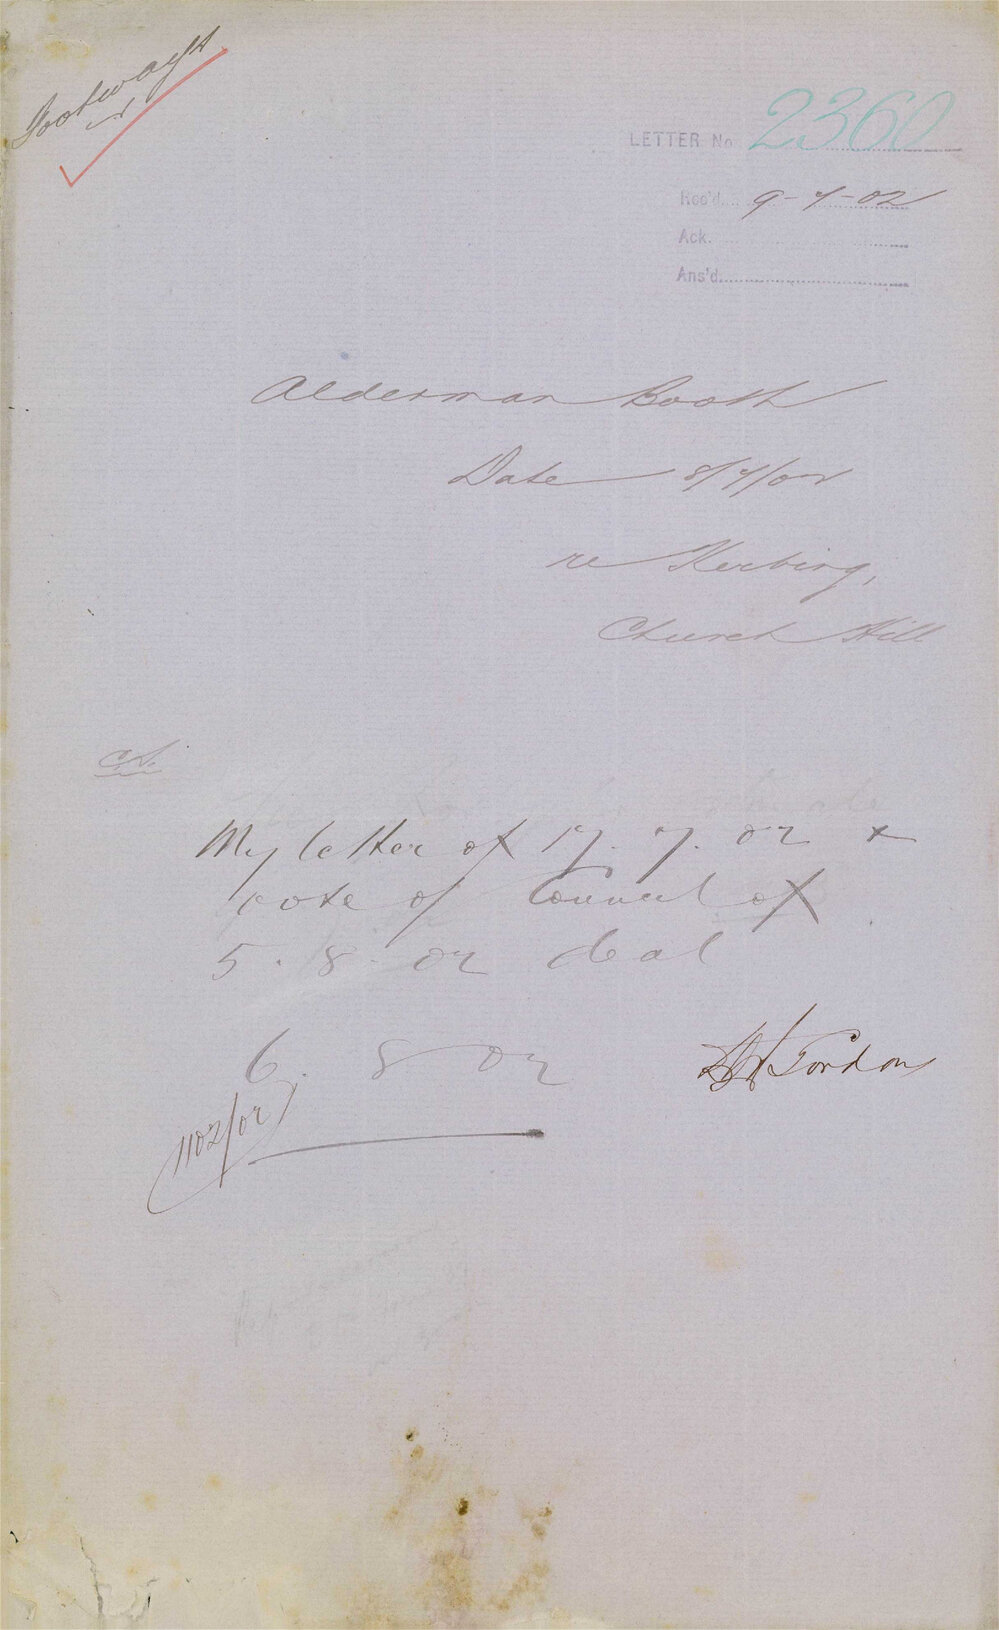 Footways
LETTER No 2360
Rec'd 9-7-02
Ack.
Ans'd
Alderman Booth
Date 8/7/02
re Kerbing,
Church Hill
My letter of 17.7.02 &
vote of Council of
5.8.02 deal
6.8.02 Gordon
1102/02